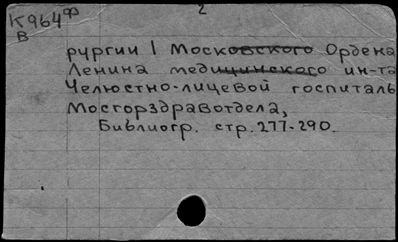 К964ф 2
В
рургии I Московского Ордена
Ленина медицинского ин-та
Челюстно-лицевой госпиталь
Мосгорздравотдела,
Библиогр. стр. 277-290.